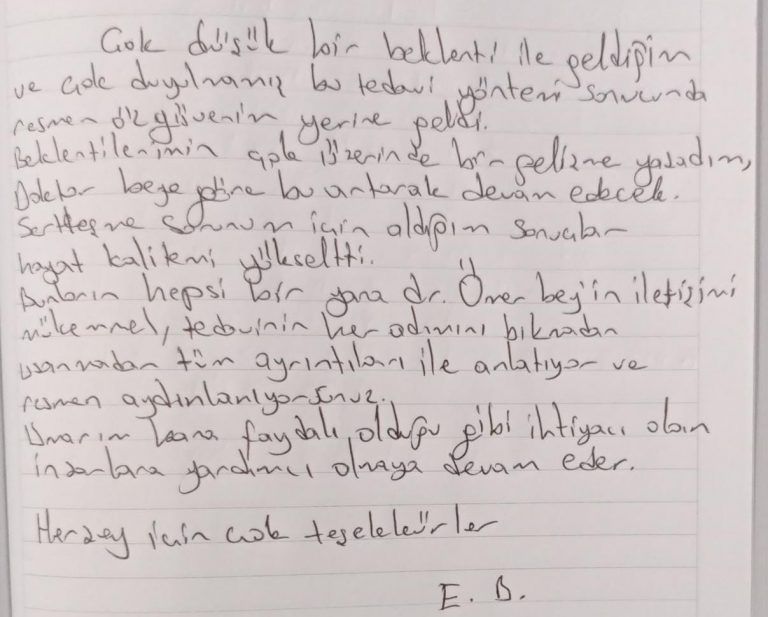 Çok düşük bir beklenti ile geldiğim
ve çok duyulmamış bu tedavi yöntemi sonucunda
resmen öz güvenim yerine geldi.
Beklentilerimin çok üzerinde bir gelişme yaşadım,
Doktor beye göre bu artarak devam edecek.
Sertleşme sorunum için aldığım sonuçlar
hayat kalitemi yükseltti.
Bunların hepsi bir yana dr. Ömer bey'in iletişimi
mükemmel, tedavinin her adımını bıkmadan
usanmadan tüm ayrıntıları ile anlatıyor ve
resmen aydınlanıyorsunuz.
Umarım bana faydalı olduğu gibi ihtiyacı olan
insanlara yardımcı olmaya devam eder.
Herşey için çok teşekkürler
E. B.